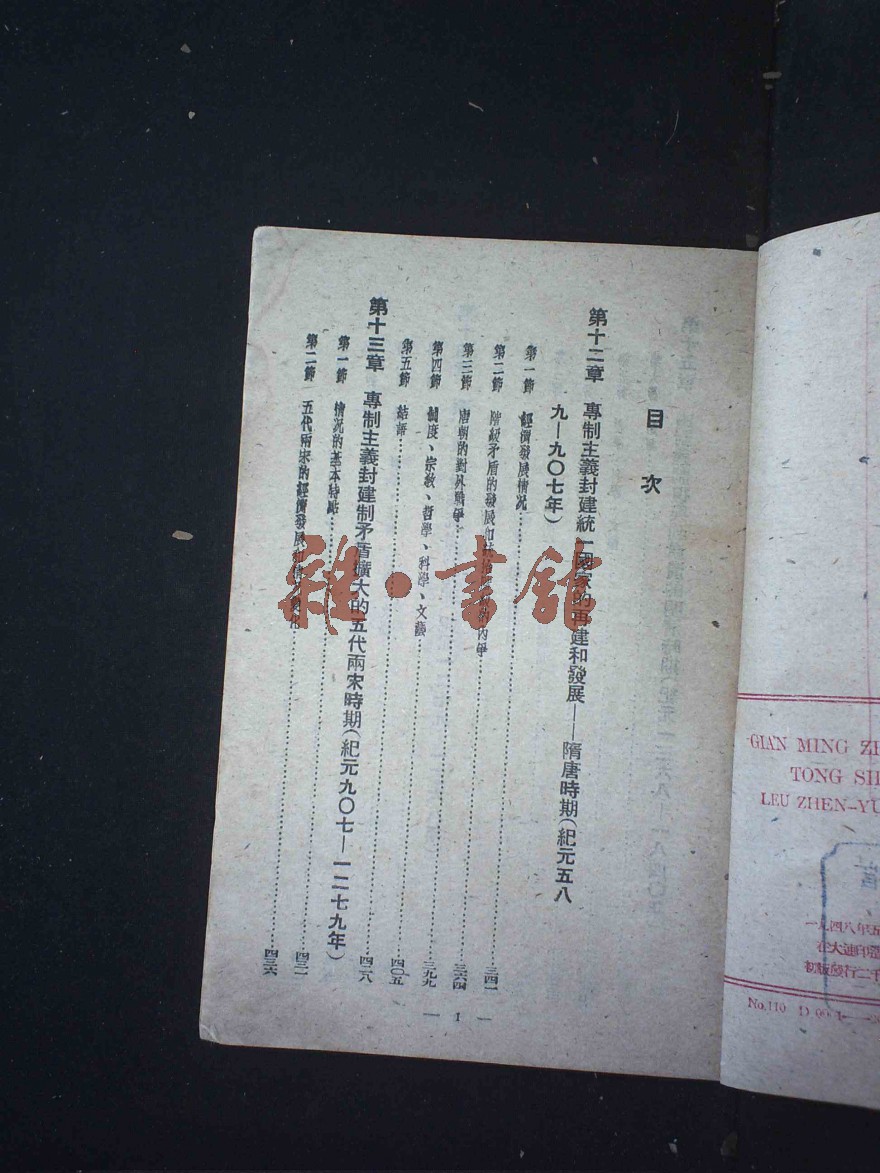 目次
第十二章 專制主義封建統一國家的再建和發展——隋唐時期(紀元五八
九—九〇七年)
第一節 經濟發展情況……三四一
第二節 階級矛盾的發展和 的內爭……三六四
第三節 唐朝的對外戰爭……三九九
第四節 制度、宗教、哲學、科學、文藝……四〇五
第五節 結語……四二八
第十三章 專制主義封建制矛盾擴大的五代兩宋時期(紀元九〇七—一二七九年)
第一節 情況的基本特點……四三一
第二節 五代兩宋的經濟發展……四三六
— 1 —
雜·書館
GIAN MING ZH
TONG SH
LEU ZHEN-YU
一九四八年五
在大連印造
初版發行二千
No.110